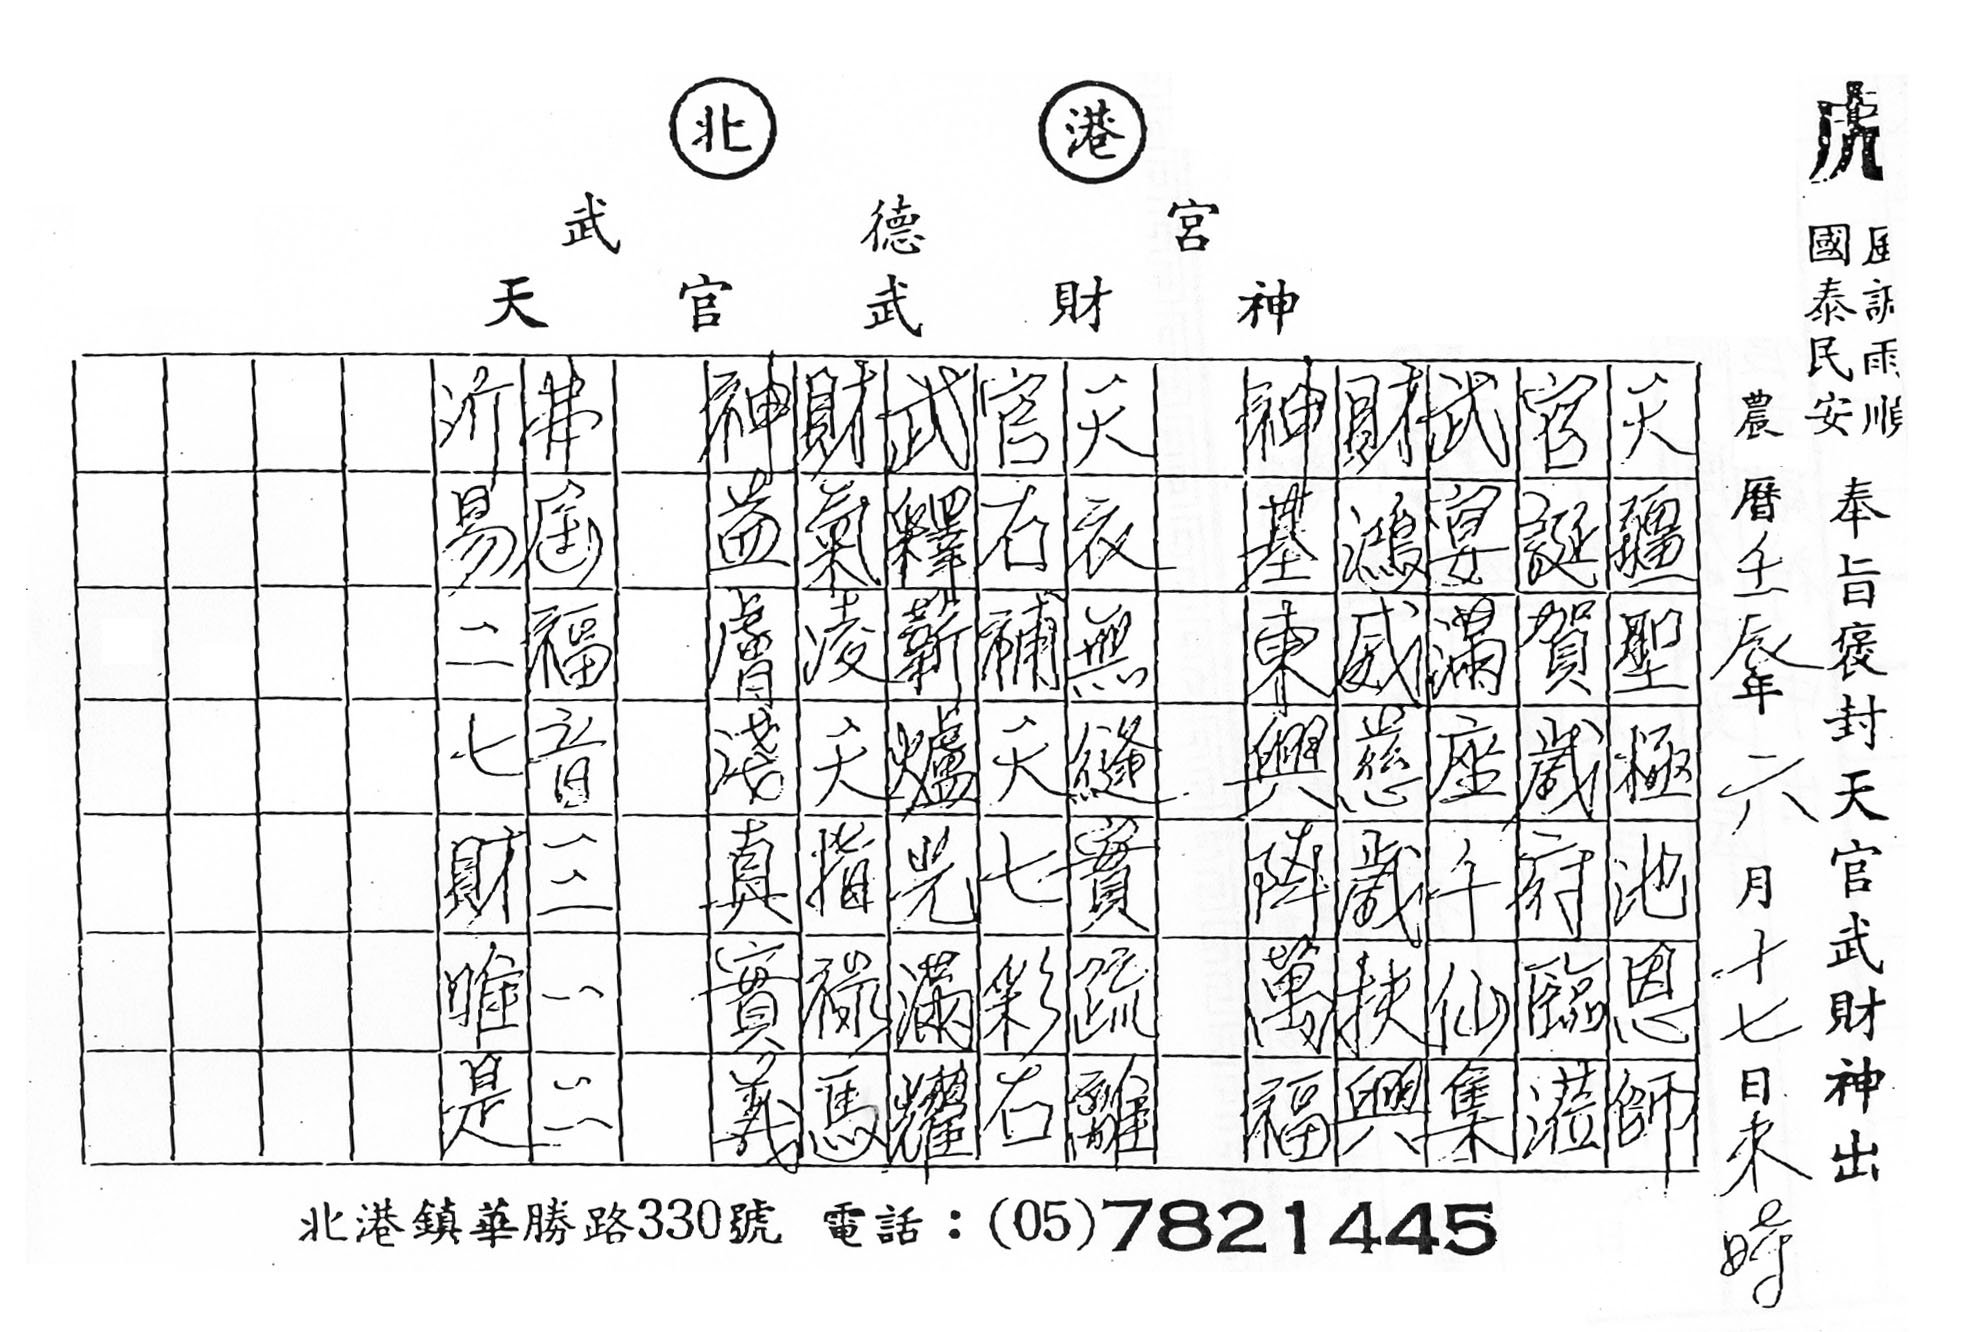 北港
武德宮
天官武財神
風調雨順
國泰民安
奉旨褒封天官武財神出
農曆壬辰年六月十七日未時
天疆聖極池恩師
官誕賀歲府臨蒞
武宴滿座千仙集
財鴻威慈歲扶興
神基東興陣萬福
天衣無縫實疏離
官石補天七彩石
武釋蘄爐光滿耀
財氣凌天指祿馬
神益膚淺真實義
弗屆福音三一二
所易二七財唯是
北港鎮華勝路330號 電話：(05)7821445